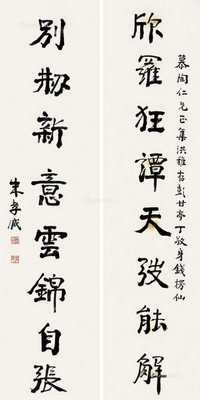 慕陶仁兄正集洪稚存彭甘亭丁敬身錢撈仙
欣羅狂譚天弢能解
別刱新意雲錦自張
朱孝臧